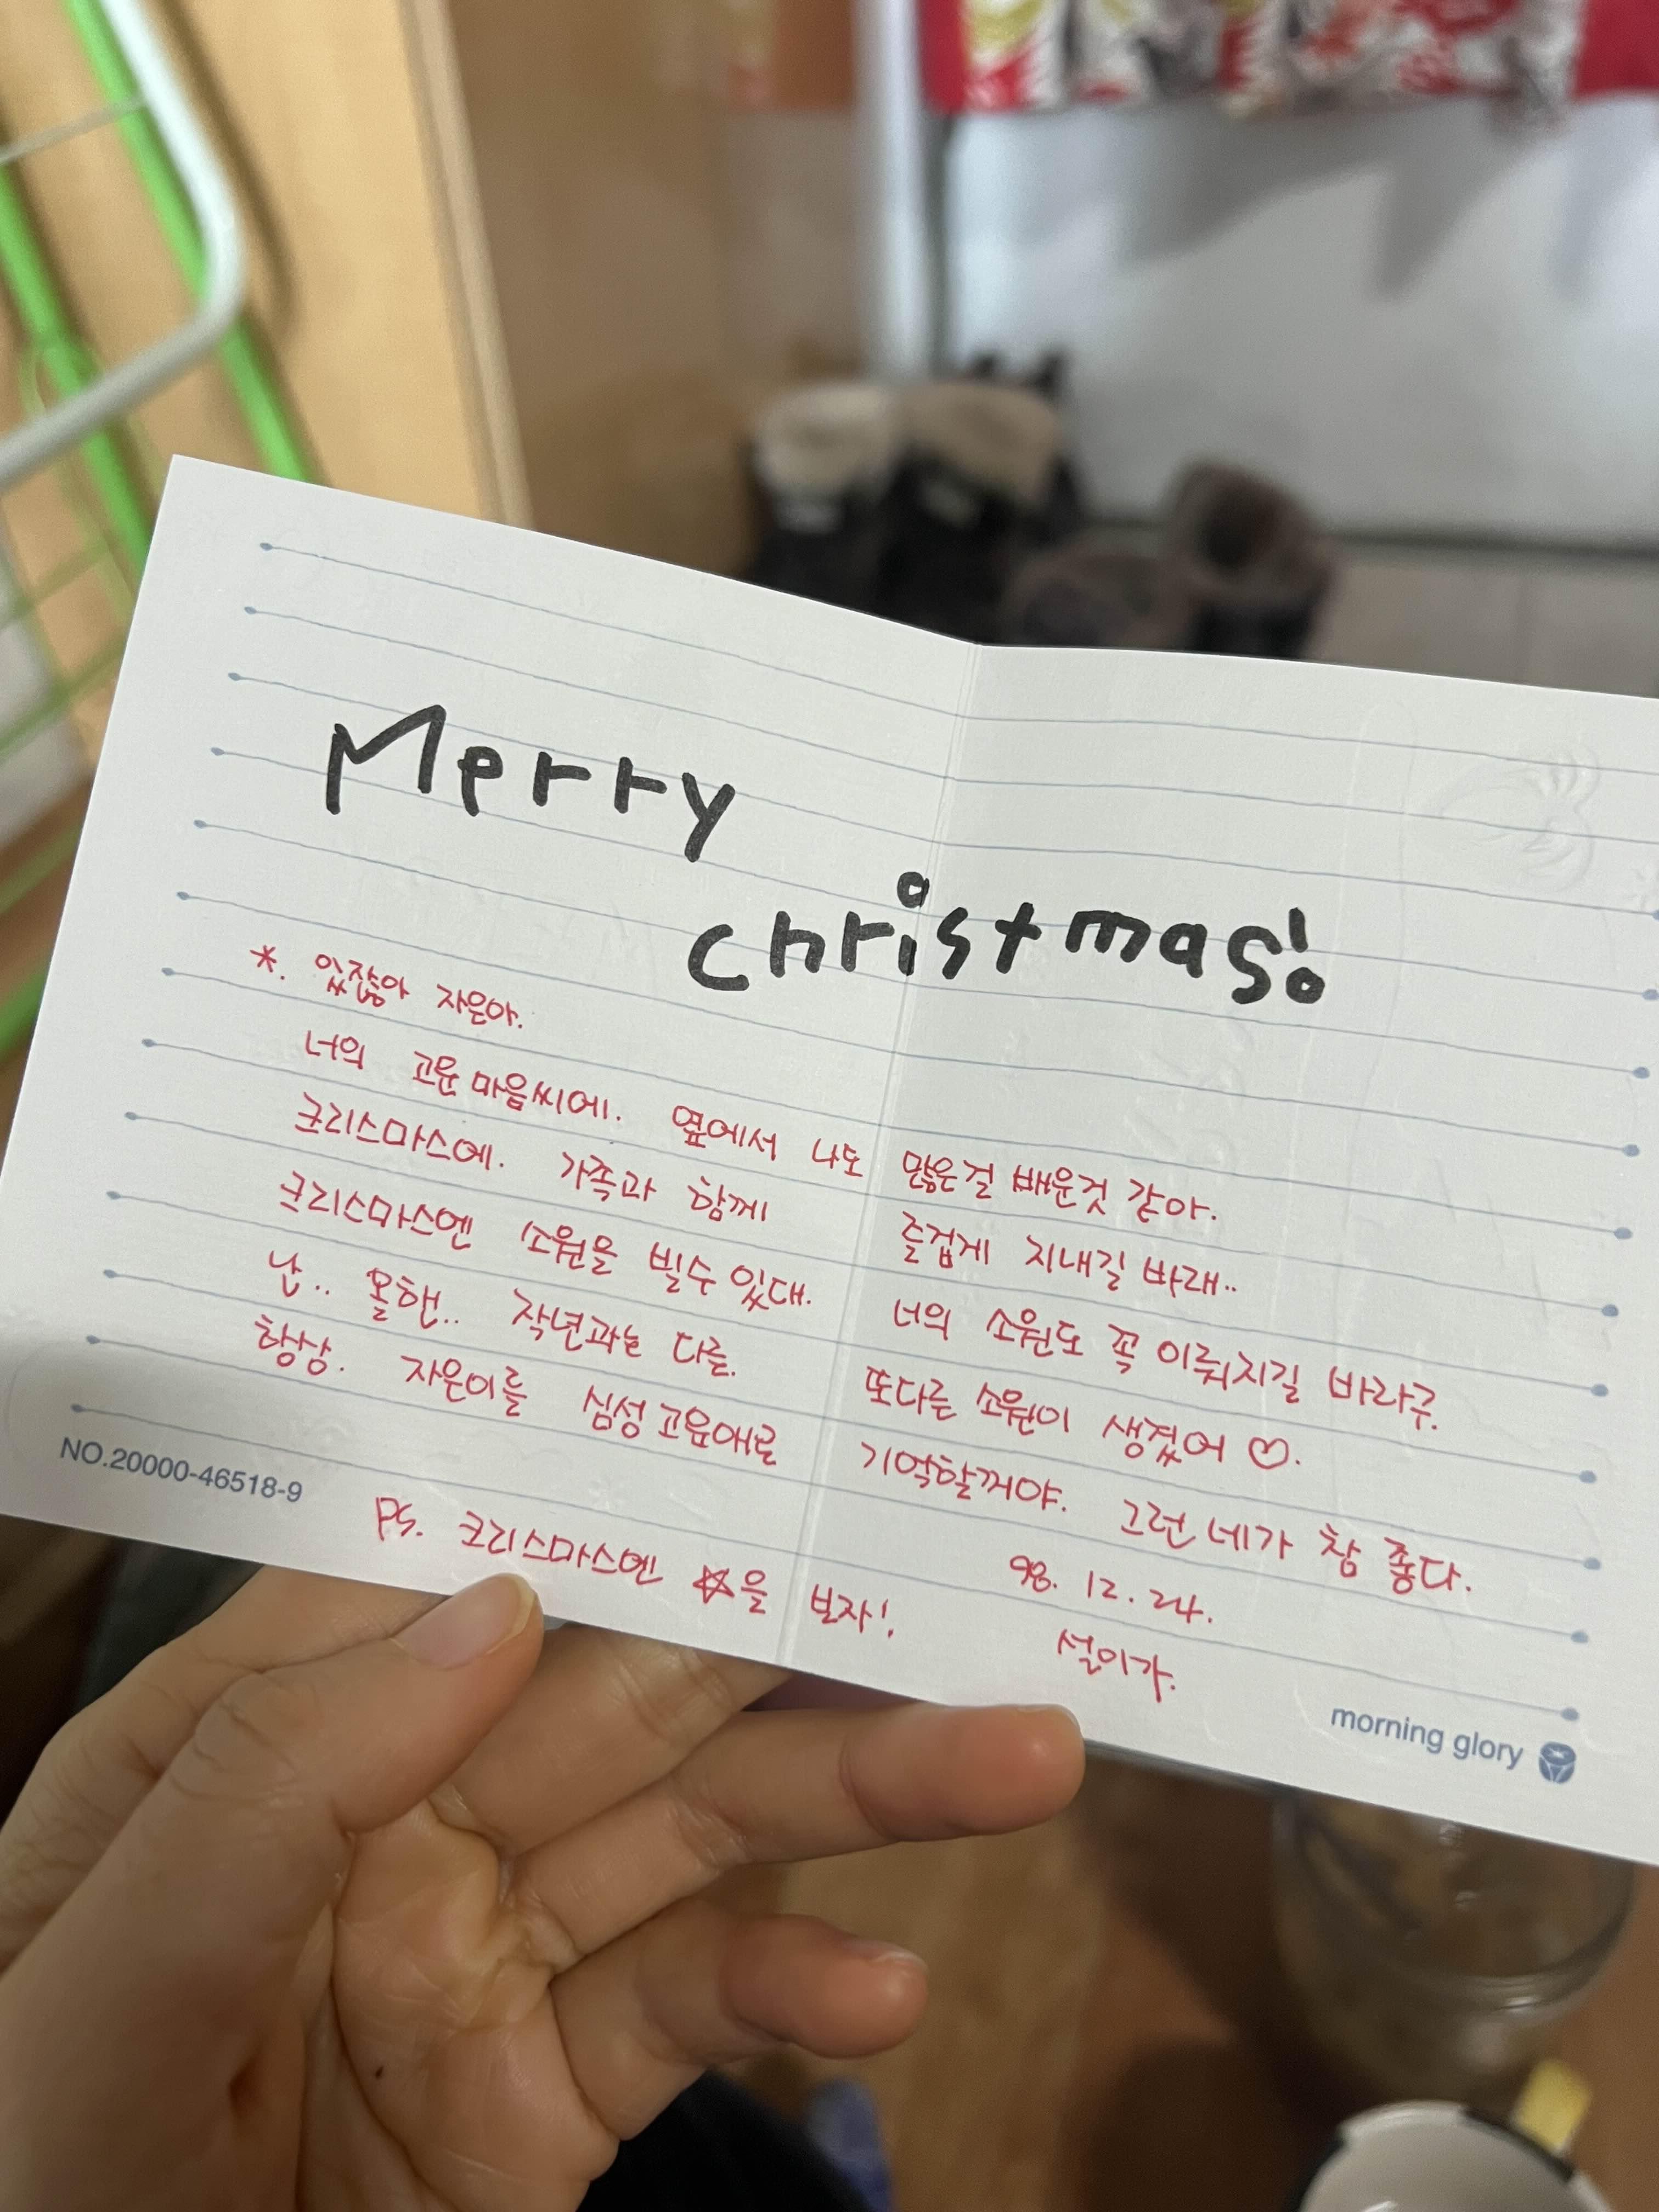 Merry
christmas!
*. 있잖아 자은아.
너의 고운 마음씨에. 옆에서 나도 많은걸 배운것 같아.
크리스마스에. 가족과 함께 즐겁게 지내길 바래..
크리스마스엔 소원을 빌수 있대. 너의 소원도 꼭 이뤄지길 바라구.
난.. 올핸.. 작년과는 다른. 또다른 소원이 생겼어 ♡.
항상. 자은이를 심성 고운애로 기억할꺼야. 그런 네가 참 좋다.
98. 12. 24.
설이가.
PS. 크리스마스엔 ☆을 보자!
NO.20000-46518-9
morning glory